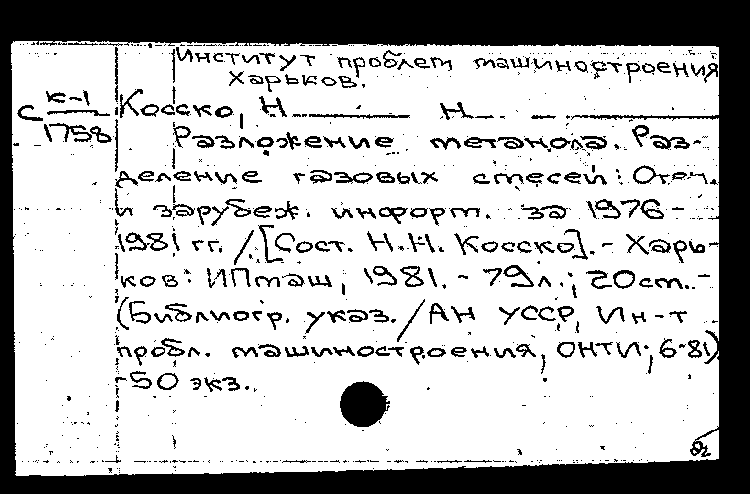 Институт проблем машиностроения
Харьков.
с к-1/1758
Косско, Н Н
Разложение метанола. Раз-
деление газовых смесей: Отеч.
и зарубеж. информ. за 1976-
1981 гг. / [Сост. Н.Н. Косско]. - Харь-
ков: ИПмаш, 1981. - 79л.; 20см. -
(Библиогр. указ. / АН УССР, Ин-т
пробл. машиностроения, ОНТИ; 6-81)
-50 экз.